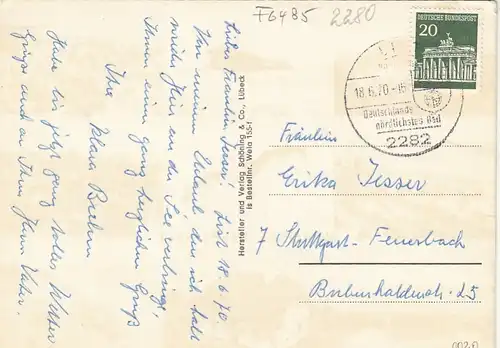 F6485
2280
DEUTSCHE BUNDESPOST
20
18.6.70
Deutschlands
nördlichstes Bad
2282
List 18.6.70.
Liebes Fräulein Jesser!
Von meinem Urlaub den ich bald
wieder hier an der See verbringe,
Ihnen einen ganz herzlichen Gruß
Ihre
Klara
Habe bis jetzt ganz tolles Wetter
Grüße auch an Ihren Herrn Vater.
Hersteller und Verlag Schöning & Co., Lübeck
Is Bestellnr. Wela 155
Fräulein
Erika Jesser
7 Stuttgart-Feuerbach
25